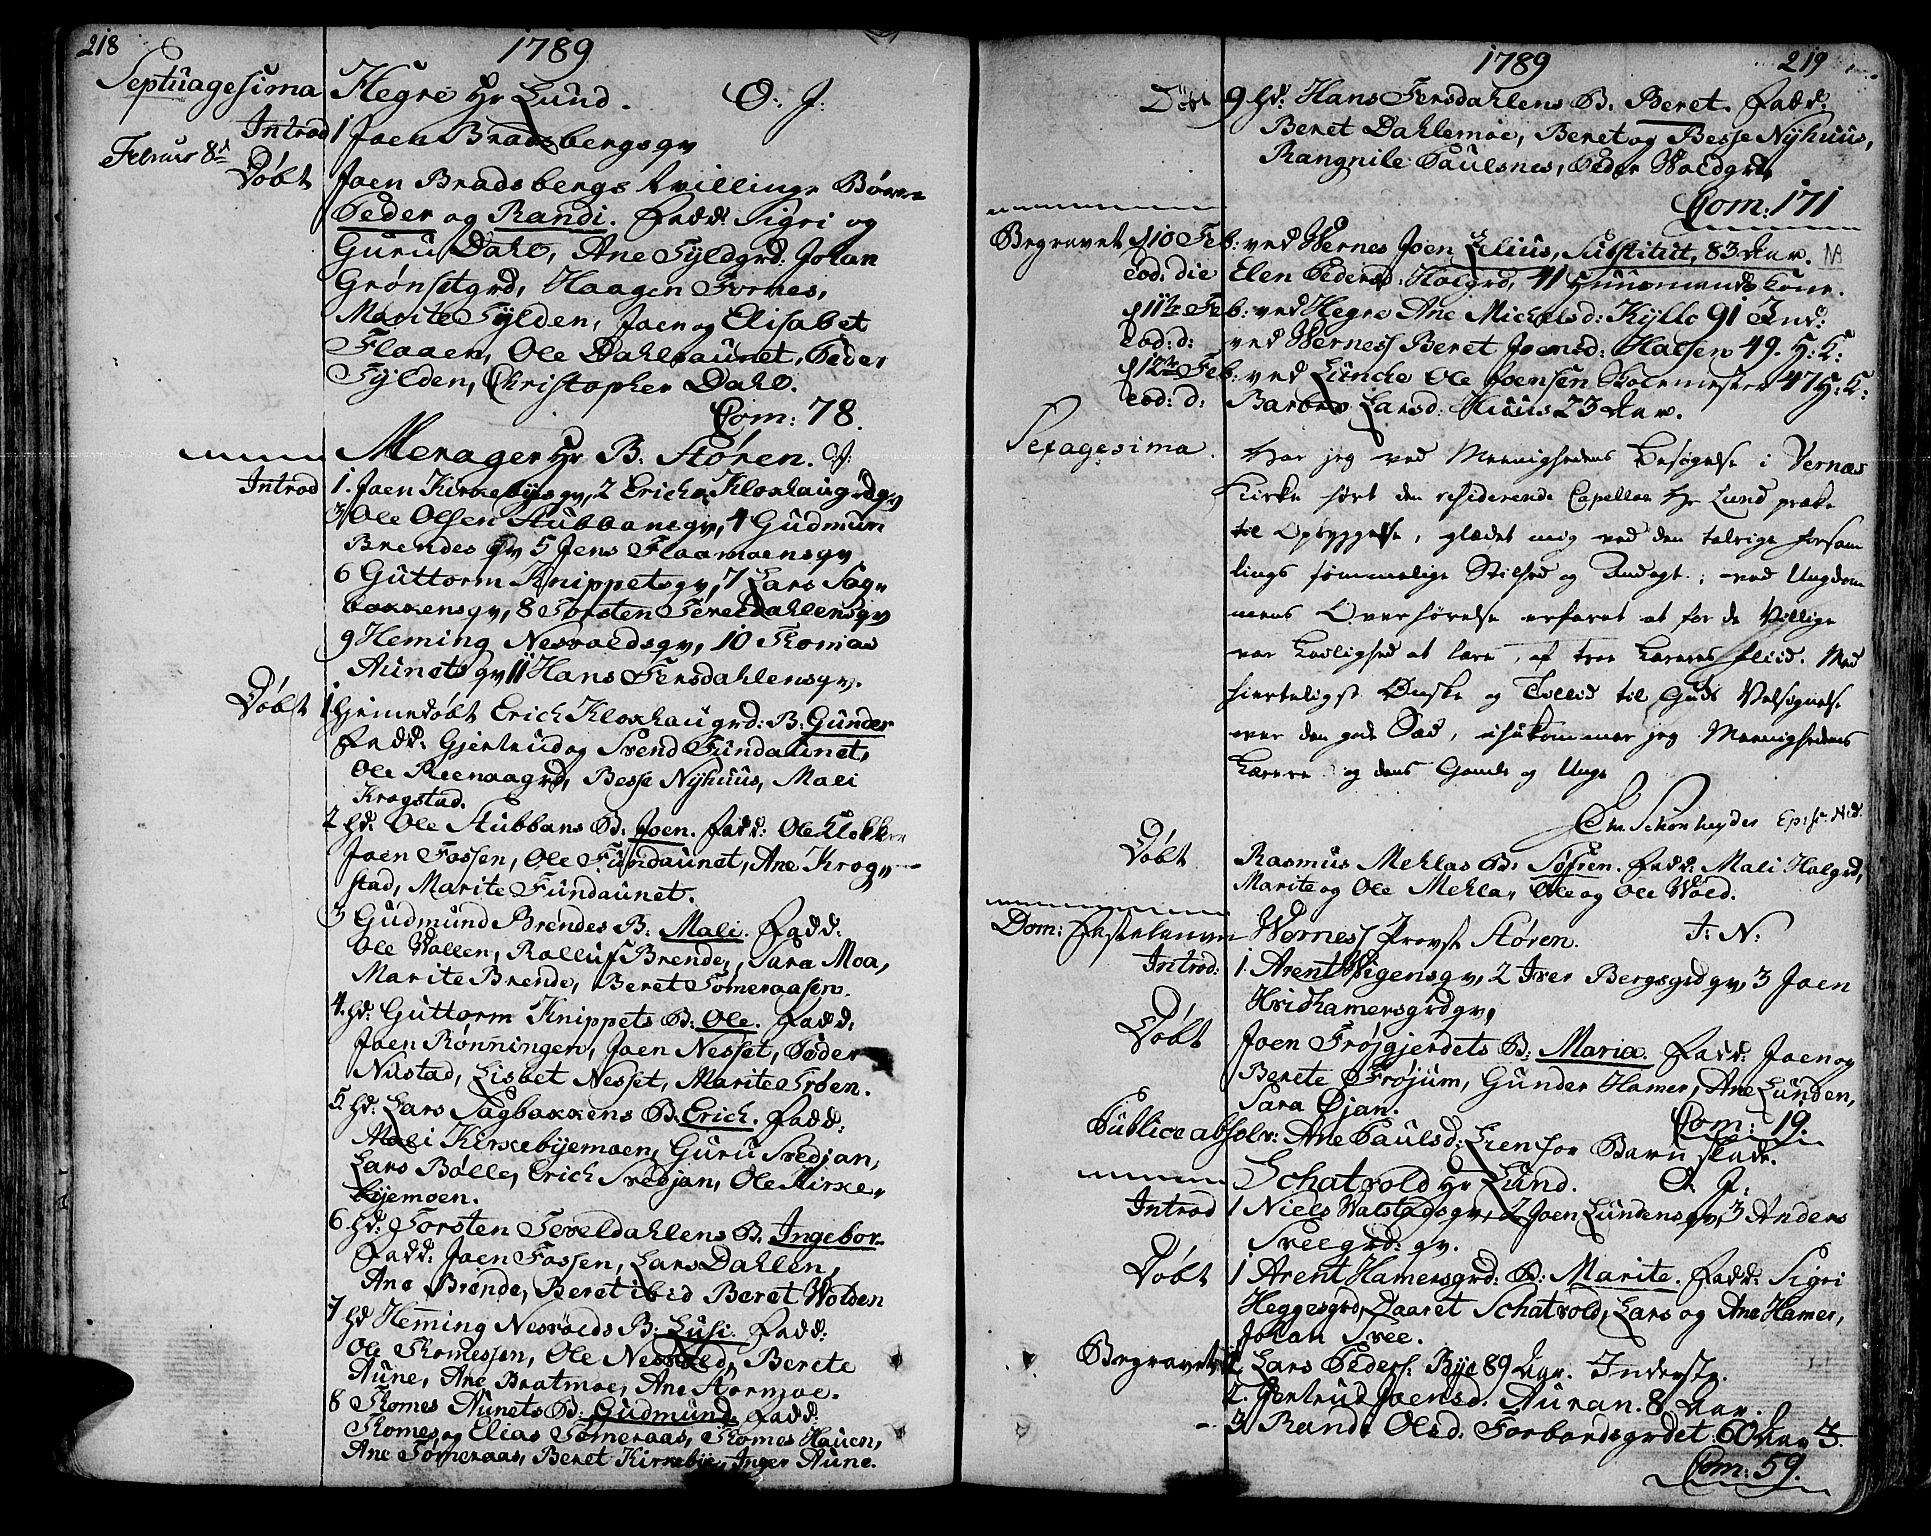 218
1789
Septuagesima Hegre Hr Lund. O: J:
Introd 1 Joen Bradsbergs qv
Februar 8d
Døbt Joen Bradsbergs tvillinge Børn
Peder og Randi. Fadd: Sigri og
Guru Dahl, Ane Fyldgrd: Johan
Grønsetgrd, Haagen Fornes,
Marite Fylden, Joen og Elisabet
Flaaen, Ole Dahlsaunet, Peder
Fylden, Christopher Dahl.
Com: 78.
Merager Hr B. Støren. O J:
Introd 1. Joen Kirkebyes qv, 2 Erich Kloxhaugrds qv
3 Ole Olsen Stubbans qv, 4 Gudmun
Brendes qv 5 Jens Flaamoens qv
6 Guttorm Knippets qv, 7 Lars Sag-
bakkens qv, 8 Torsten Teveldahlens qv
9 Heming Nesvolds qv, 10 Thomas
Aunets qv 11 Hans Fersdahlens qv.
Døbt 1 hiemedøbt Erich Kloxhaugrd: B: Gunder
Fadd: Gjertrud og Svend Fundaunet,
Ole Reenaagrd, Besse Nyhuus, Mali
Krogstad.
2 hd: Ole Stubbans B. Joen. Fadd: Ole Klokke
Joen Fossen, Ole Fundaunet, Ane Krog-
stad, Marite Fundaunet.
3 Gudmund Brendes B: Mali. Fadd:
Ole Wollen, Rolluf Brende, Sara Moa,
Marite Brende, Beret Tømeraasen.
4. hd: Guttorm Knippets B: Ole. Fadd:
Joen Rønningen, Joen Nesset, Peder
Nustad, Lisbet Nesset, Marite Trøen.
5. hd: Lars Sagbakkens B. Erich. Fadd:
Mali Kirkebyemoen, Guru Svedjan,
Lars Bølle, Erich Svedjan, Ole Kirke-
byemoen.
6 hd: Torsten Teveldahlens B. Ingebor.
Fadd: Joen Fossen, Lars Dahlen,
Ane Brende, Beret ibid Beret Wolden
7 hd Heming Nesvolds B: Lusi. Fadd:
Ole Thomessen, Ole Nesvold, Berete
Aune, Ane Bratmoe, Ane Stormoe.
8 Thomes Aunets B: Gudmund. Fadd:
Thomes og Elias Tømeraas, Thomes Hauen,
Ane Tømeraas, Beret Kirkebye, Inger Aune.
1789
219
Døbt 9 hd: Hans Fersdahlens B. Beret. Fadd:
Beret Dahlemoe, Beret og Besse Nyhuus,
Rangnile Paulsnes, Peder Woldgrd,
Com: 171
Begravet d 10 Feb: ved Wernes Joen Elius, Substitut, 83 Aar. NB
eod: die Elen Pedersd: Halgrd, 41 Huusmands Kone.
d 11te Feb: ved Hegre Ane Michelsd: Kyllo 91 Ind:
eod: d: ved Werness Beret Joensd: Halsen 49. H: K:
d 12te Feb: ved Lunde Ole Joensen Skolemester 47 H: K:
eod: d: Barbro Larsd: Huus 23 Aar.
Sexagesima. Har jeg ved Meenighedens Besøgelse i Vernæs
Kirke hørt den residerende Capellan Hr Lund præke
til Opbyggelse, glædet mig ved den talrige Forsam
lings sømmelige Stilhed og Andagt; ved Ungdom
mens Overhørelse erfaret at for de Villige
var Leilighed at lære, af troe Læreres Fliid. Med
hierteligst Ønske og Tillid til Guds Velsignelse
over den gode Sæd, ihukommer jeg Meenighedens
Lærere og dens Gamle og Unge
Chr. Schønheyder Episc: Nid.
Døbt Rasmus Mehlas B. Søfren. Fadd: Mali Halgrd,
Marite og Ole Mehla, Ole og Ole Wold.
Dom: Fastelavn Werness Provst Støren. J: N:
Introd: 1. Arent Wigens qv, 2 Iver Bergsgrd qv, 3 Joen
Hvidhamersgrd qv,
Døbt Joen Trøjgjerdets B: Maria. Fadd: Joen og
Berete Frøjum, Gunder Hamer, Ane Lunden,
Sara Øjan. Com: 19.
Publice absolv: Ane Paulsd: Lien for Barn slede.
Schatvold Hr Lund. O. J:
Introd 1 Niels Walstads qv, 2 Joen Lundens qv, 3 Anders
Sveegrd: qv.
Døbt 1 Arent Hamersgrd: B: Marite. Fadd: Sigri
Heggesgrd, Daaret Schatvold, Lars og Ane Hamer,
Johan Svee.
Begravet 1. Lars Peders: Bye 89 Aar. Inderst.
2. Gjertrud Joensd. Auran. 8 Aar.
3 Randi Olsd. Forbordsgrdet 60 Aar 3.
Com: 59.